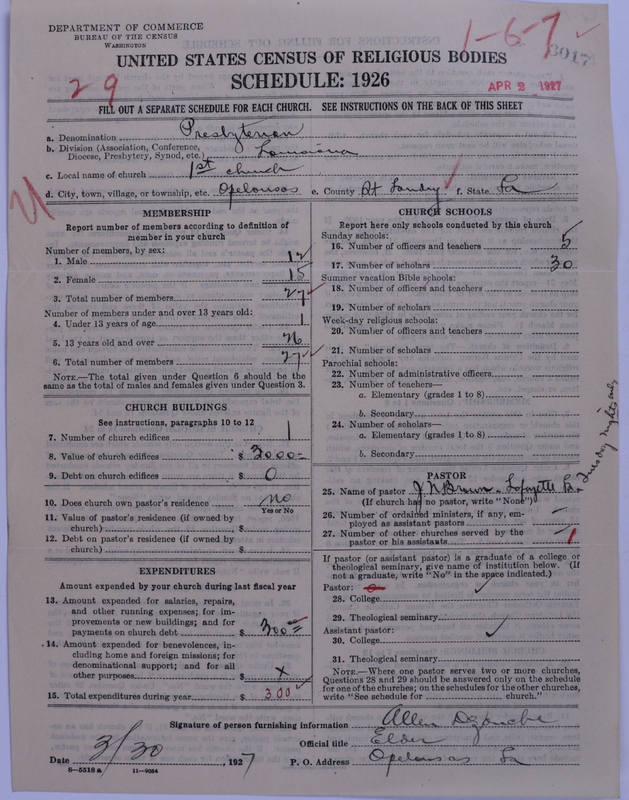 DEPARTMENT OF COMMERCE
BUREAU OF THE CENSUS
WASHINGTON
1-6-7
3017
UNITED STATES CENSUS OF RELIGIOUS BODIES
SCHEDULE: 1926
29
APR 2 1927
FILL OUT A SEPARATE SCHEDULE FOR EACH CHURCH. SEE INSTRUCTIONS ON THE BACK OF THIS SHEET
a. Denomination Presbyterian
b. Division (Association, Conference, Diocese, Presbytery, Synod, etc.) Louisiana
c. Local name of church 1st church
d. City, town, village, or township, etc. Opelousas e. County St Landry f. State La
MEMBERSHIP
Report number of members according to definition of
member in your church
Number of members, by sex:
1. Male 12
2. Female 15
3. Total number of members 27
Number of members under and over 13 years old:
4. Under 13 years of age 1
5. 13 years old and over 26
6. Total number of members 27
NOTE.—The total given under Question 6 should be
same as the total of males and females given under Question 3.
CHURCH BUILDINGS
See instructions, paragraphs 10 to 12
7. Number of church edifices 1
8. Value of church edifices $ 3000=
9. Debt on church edifices $ 0
10. Does church own pastor's residence no
Yes or No
11. Value of pastor's residence (if owned by
church) $
12. Debt on pastor's residence (if owned by
church) $
EXPENDITURES
Amount expended by your church during last fiscal year
13. Amount expended for salaries, repairs,
and other running expenses; for im-
provements or new buildings; and for
payments on church debt $ 300=
14. Amount expended for benevolences, in-
cluding home and foreign missions; for
denominational support; and for all
other purposes $ x
15. Total expenditures during year $ 300
CHURCH SCHOOLS
Report here only schools conducted by this church
Sunday schools:
16. Number of officers and teachers 5
17. Number of scholars 30
Summer vacation Bible schools:
18. Number of officers and teachers
19. Number of scholars
Week-day religious schools:
20. Number of officers and teachers
21. Number of scholars
Parochial schools:
22. Number of administrative officers
23. Number of teachers—
a. Elementary (grades 1 to 8)
b. Secondary
24. Number of scholars—
a. Elementary (grades 1 to 8)
b. Secondary
PASTOR
25. Name of pastor J N Brown - Lafayette La -
(If church has no pastor, write "None")
26. Number of ordained ministers, if any, em-
ployed as assistant pastors —
27. Number of other churches served by the
pastor or his assistants 1
If pastor (or assistant pastor) is a graduate of a college or
theological seminary, give name of institution below. (If
not a graduate, write "No" in the space indicated.)
Pastor:
28. College
29. Theological seminary
Assistant pastor:
30. College
31. Theological seminary
NOTE.—Where one pastor serves two or more churches,
Questions 28 and 29 should be answered only on the schedule
for one of the churches; on the schedules for the other churches,
write "See schedule for church."
Signature of person furnishing information Allen
Official title Elder
Date 3/30, 1927 P. O. Address Opelousas La
8—5518a 11—9084